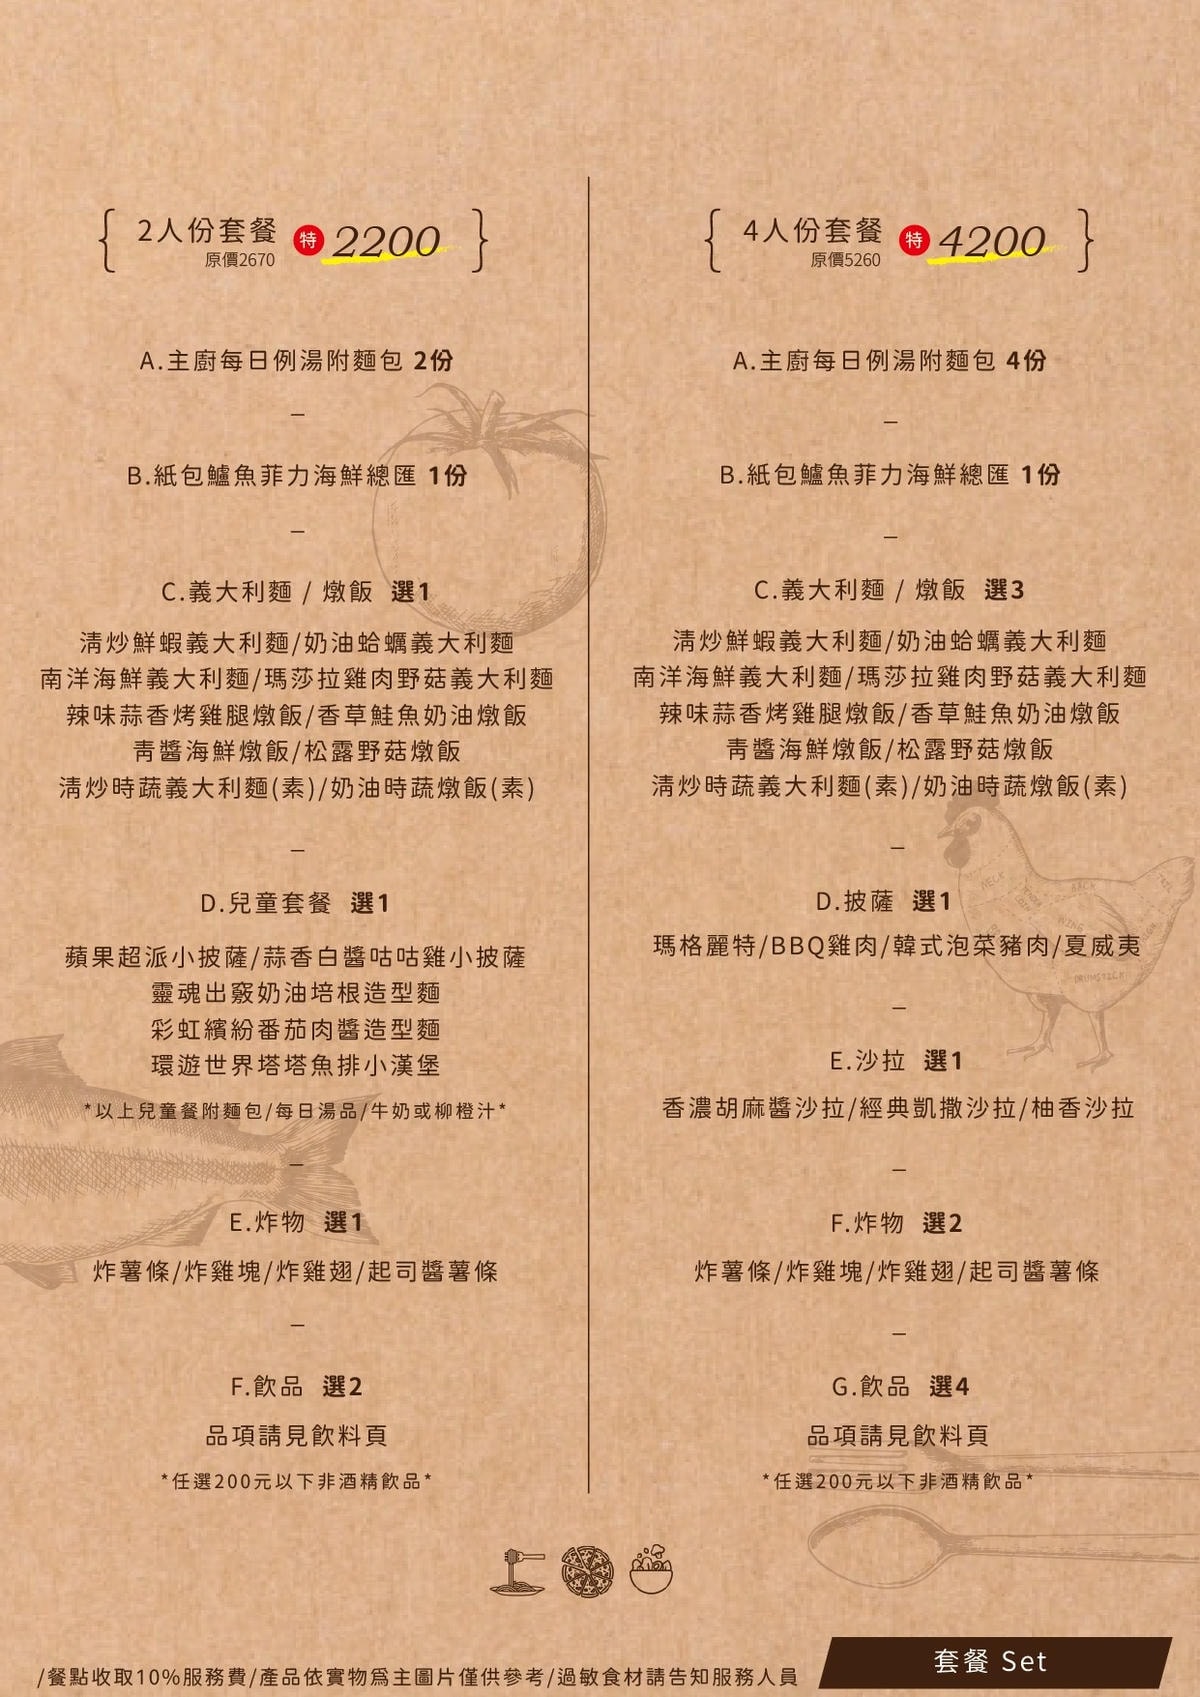 2人份套餐 特 2200
原價2670
A.主廚每日例湯附麵包 2份
–
B.紙包鱸魚菲力海鮮總匯 1份
–
C.義大利麵 / 燉飯 選1
清炒鮮蝦義大利麵/奶油蛤蠣義大利麵
南洋海鮮義大利麵/瑪莎拉雞肉野菇義大利麵
辣味蒜香烤雞腿燉飯/香草鮭魚奶油燉飯
青醬海鮮燉飯/松露野菇燉飯
清炒時蔬義大利麵(素)/奶油時蔬燉飯(素)
–
D.兒童套餐 選1
蘋果超派小披薩/蒜香白醬咕咕雞小披薩
靈魂出竅奶油培根造型麵
彩虹繽紛番茄肉醬造型麵
環遊世界塔塔魚排小漢堡
*以上兒童餐附麵包/每日湯品/牛奶或柳橙汁*
–
E.炸物 選1
炸薯條/炸雞塊/炸雞翅/起司醬薯條
–
F.飲品 選2
品項請見飲料頁
*任選200元以下非酒精飲品*
4人份套餐 特 4200
原價5260
A.主廚每日例湯附麵包 4份
–
B.紙包鱸魚菲力海鮮總匯 1份
–
C.義大利麵 / 燉飯 選3
清炒鮮蝦義大利麵/奶油蛤蠣義大利麵
南洋海鮮義大利麵/瑪莎拉雞肉野菇義大利麵
辣味蒜香烤雞腿燉飯/香草鮭魚奶油燉飯
青醬海鮮燉飯/松露野菇燉飯
清炒時蔬義大利麵(素)/奶油時蔬燉飯(素)
–
D.披薩 選1
瑪格麗特/BBQ雞肉/韓式泡菜豬肉/夏威夷
–
E.沙拉 選1
香濃胡麻醬沙拉/經典凱撒沙拉/柚香沙拉
–
F.炸物 選2
炸薯條/炸雞塊/炸雞翅/起司醬薯條
–
G.飲品 選4
品項請見飲料頁
*任選200元以下非酒精飲品*
NECK
BACK
WING
DRUMSTICK
套餐 Set
/餐點收取10%服務費/產品依實物為主圖片僅供參考/過敏食材請告知服務人員